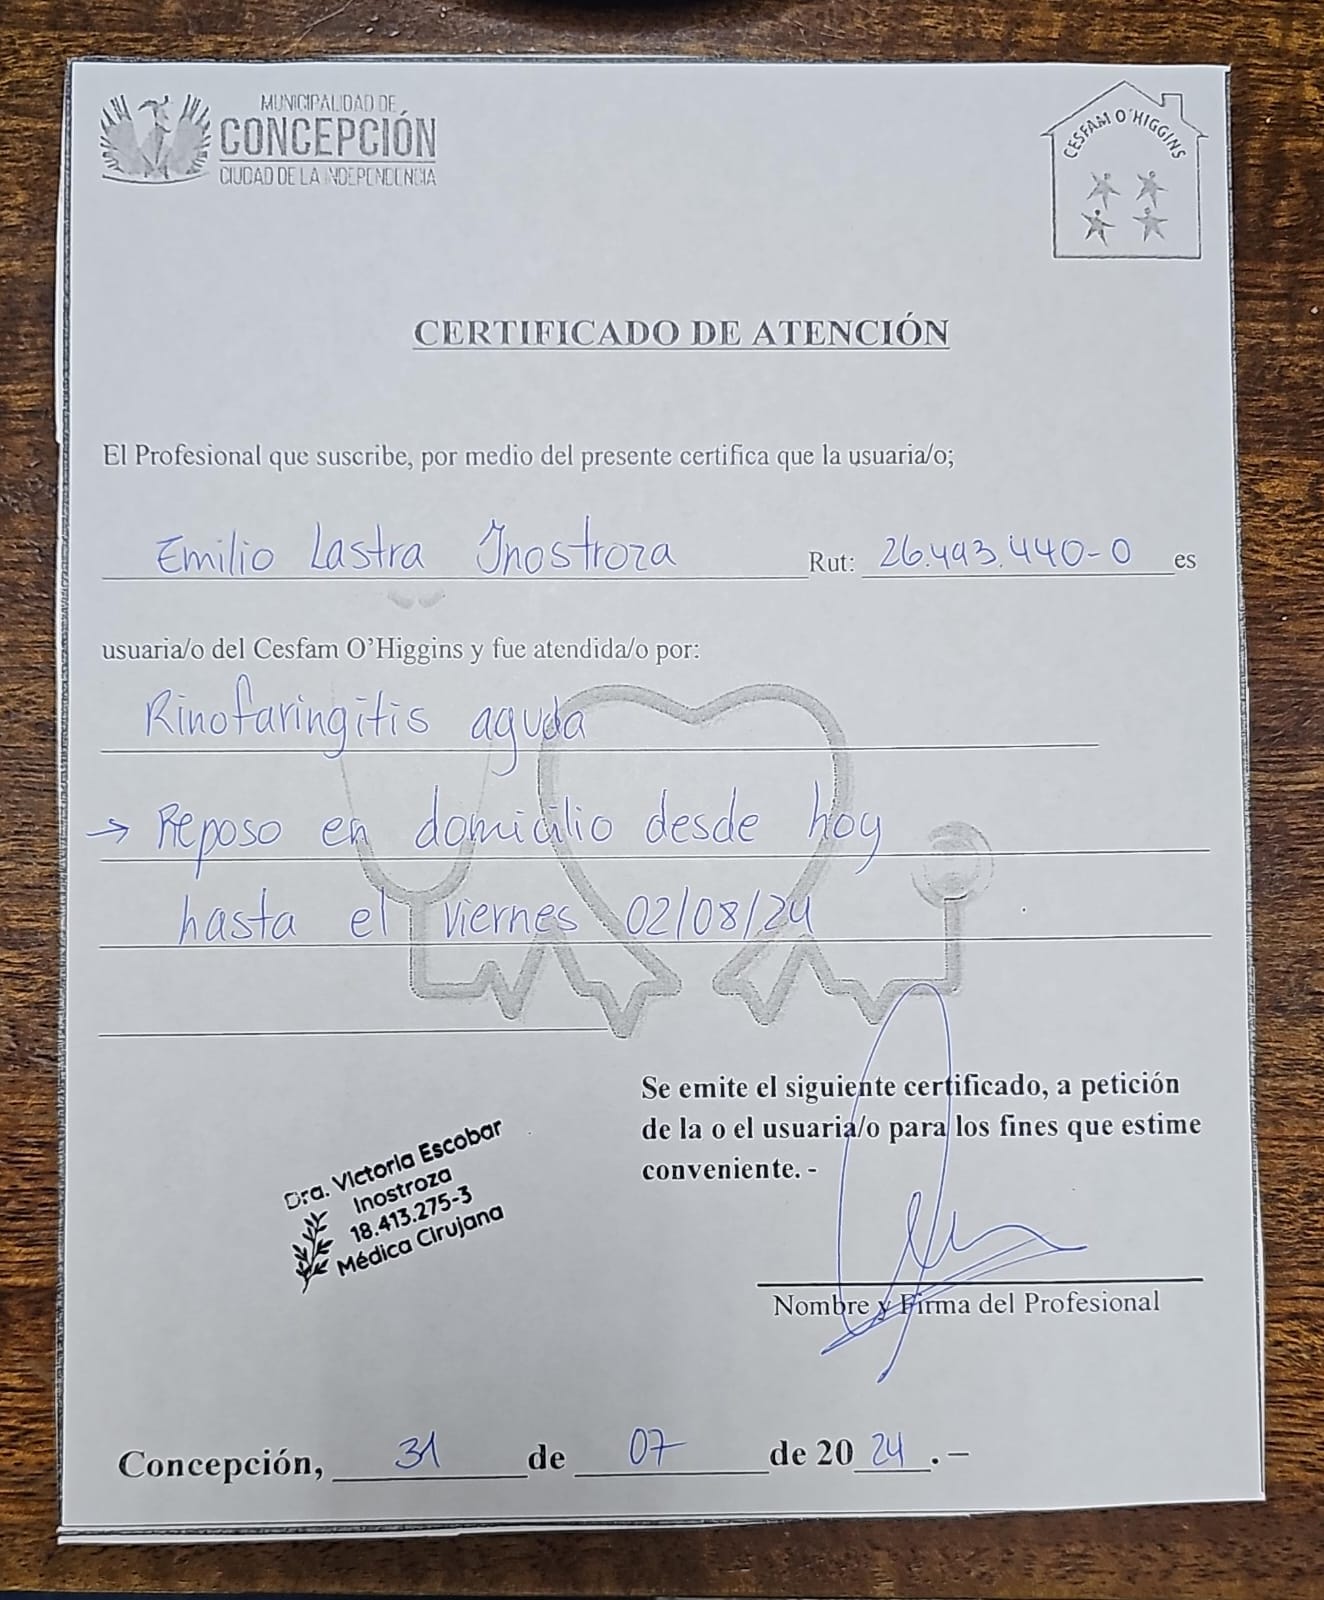 MUNICIPALIDAD DE
CONCEPCIÓN
CIUDAD DE LA INDEPENDENCIA
CESFAM O´HIGGINS
CERTIFICADO DE ATENCIÓN
El Profesional que suscribe, por medio del presente certifica que la usuaria/o;
Emilio Lastra Inostroza Rut: 26.493.440-0 es
usuaria/o del Cesfam O’Higgins y fue atendida/o por:
Rinofaringitis aguda
→ Reposo en domicilio desde hoy
hasta el viernes 02/08/24
Se emite el siguiente certificado, a petición
de la o el usuaria/o para los fines que estime
conveniente. -
Dra. Victoria Escobar
Inostroza
18.413.275-3
Médica Cirujana
Nombre y Firma del Profesional
Concepción, 31 de 07 de 20 24. –